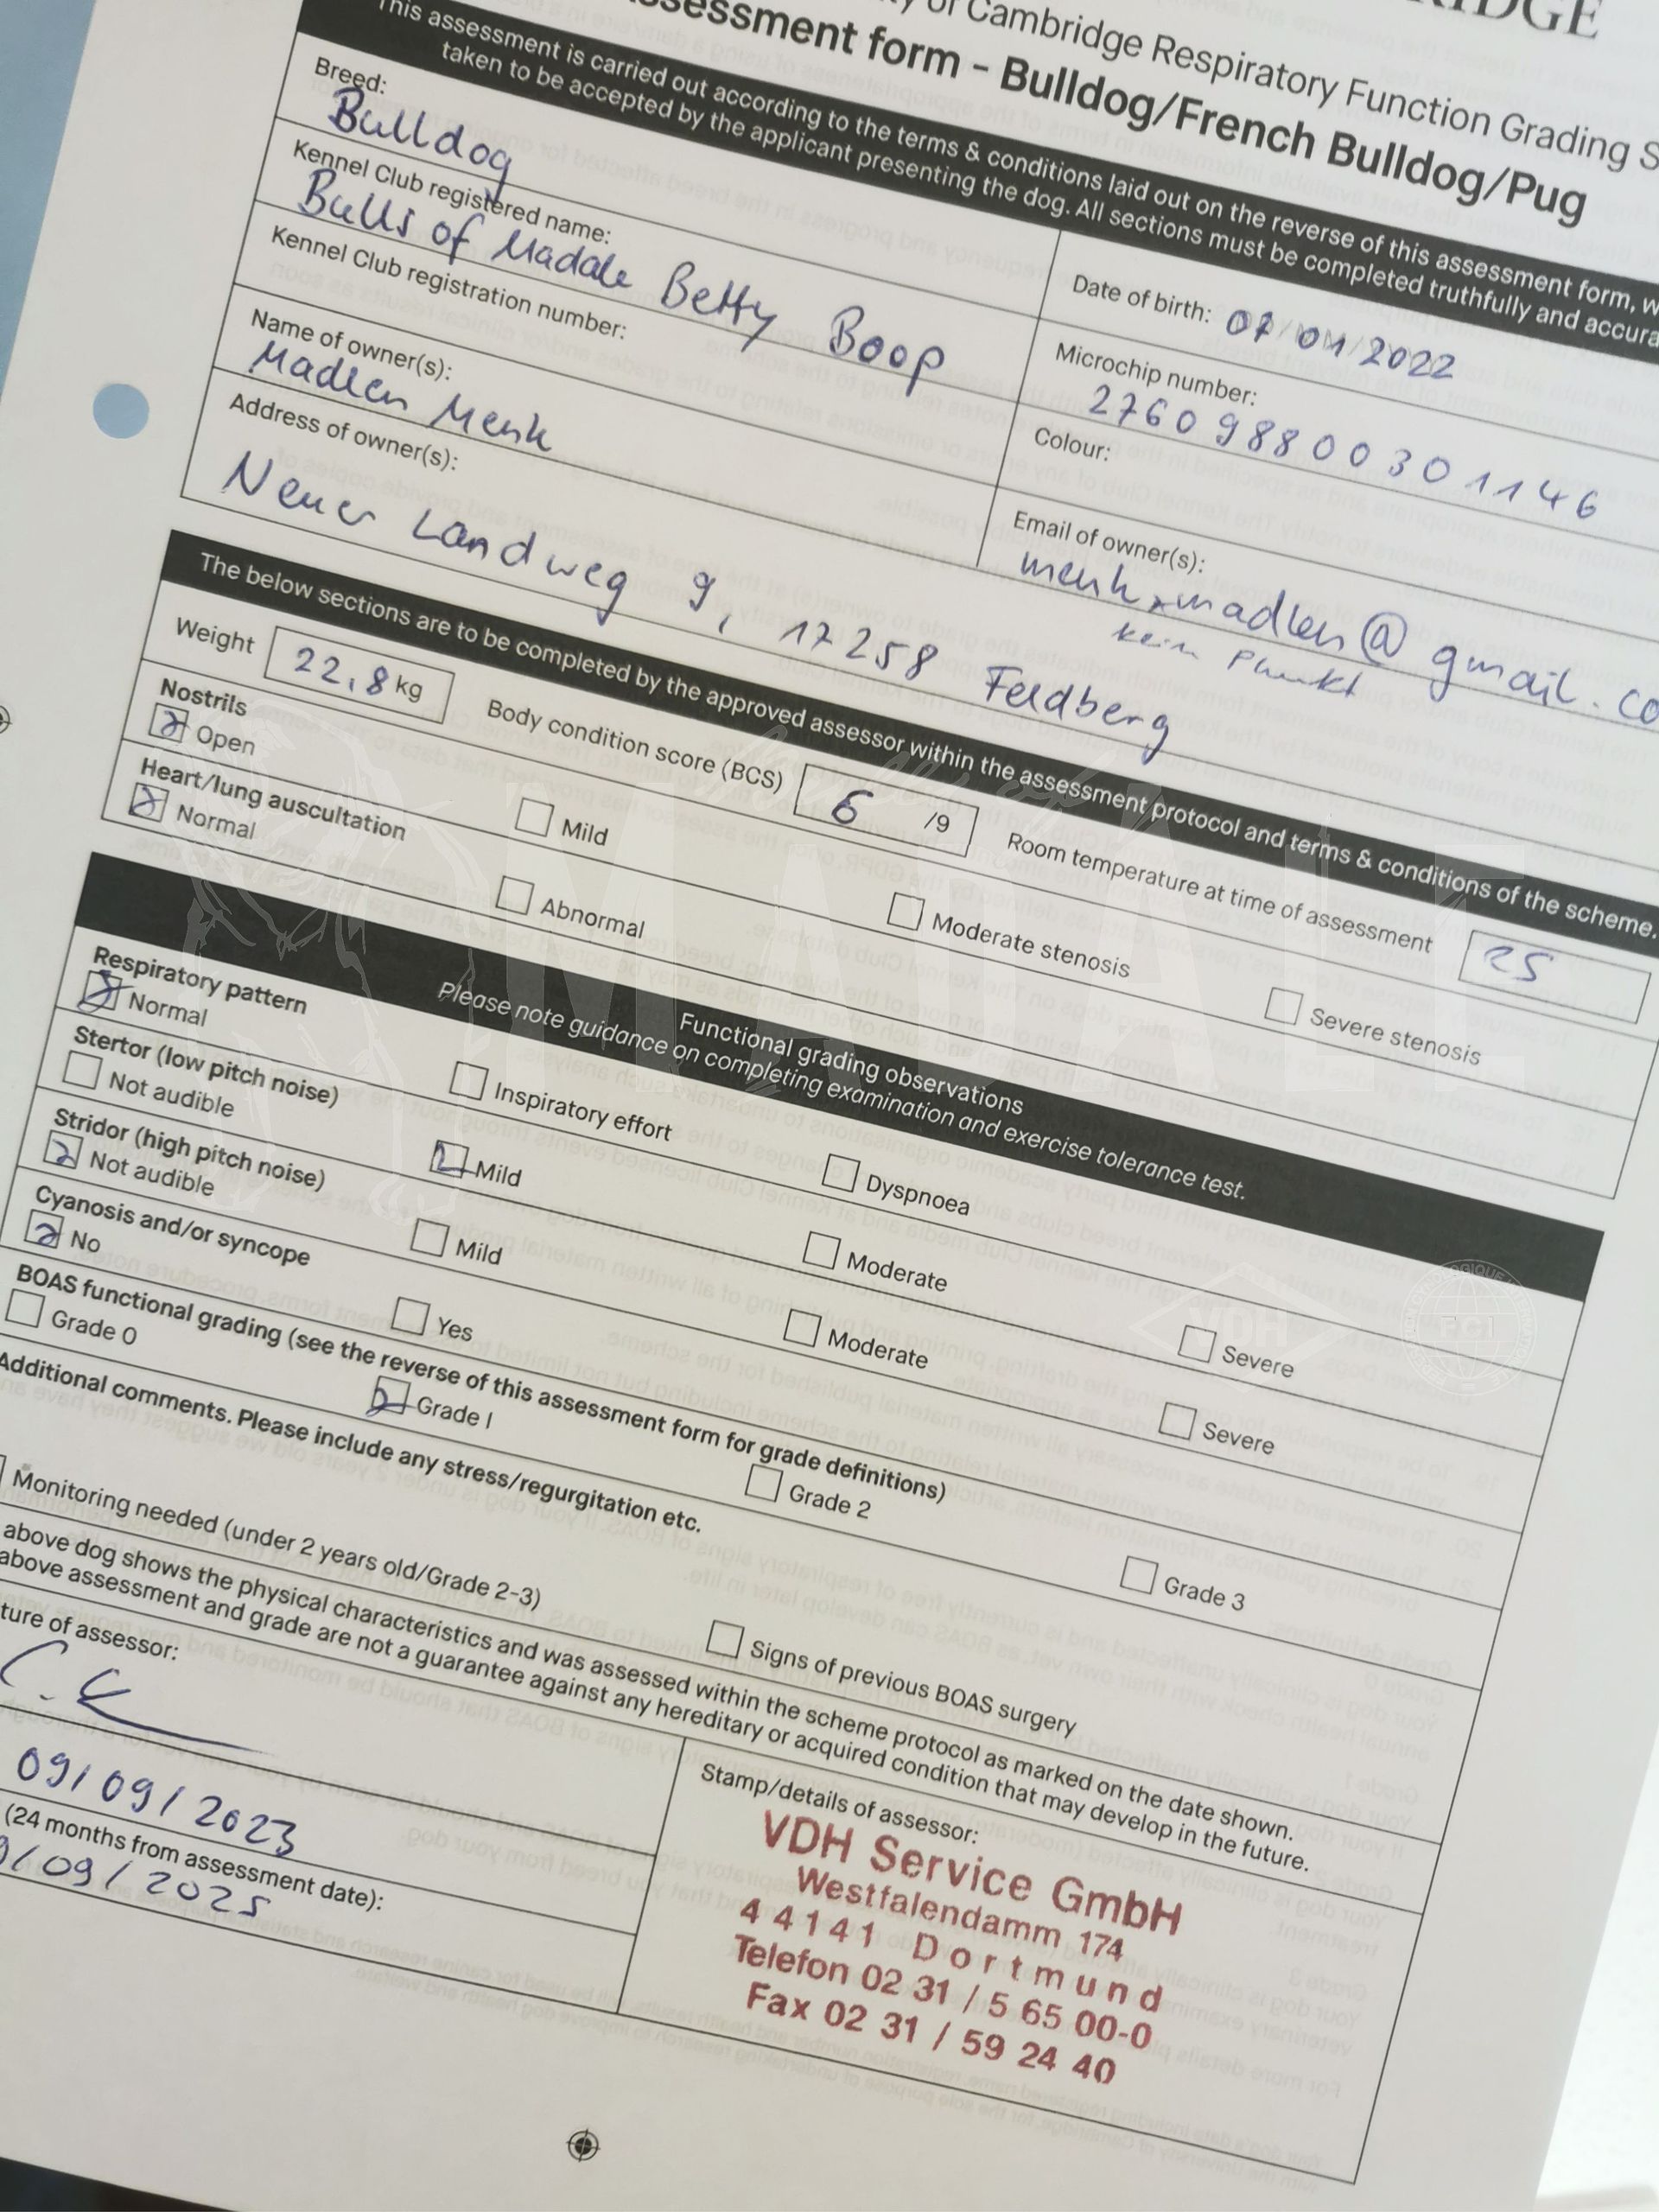 of Cambridge Respiratory Function Grading S
sessment form - Bulldog/French Bulldog/Pug
This assessment is carried out according to the terms & conditions laid out on the reverse of this assessment form, w
taken to be accepted by the applicant presenting the dog. All sections must be completed truthfully and accura
Breed:
Bulldog
Kennel Club registered name:
Bulls of Madale Betty Boop
Date of birth: 07/01/2022
Kennel Club registration number:
Microchip number:
276098800301146
Name of owner(s):
Madlen Menk
Colour:
Address of owner(s):
Neuer Landweg 9, 17258 Feldberg
Email of owner(s):
menk madlen@gmail.co
kein Punkt
The below sections are to be completed by the approved assessor within the assessment protocol and terms & conditions of the scheme.
Weight 22,8 kg Body condition score (BCS) 6 /9 Room temperature at time of assessment 25
Nostrils
Open Mild Moderate stenosis Severe stenosis
Heart/lung auscultation
Normal Abnormal
Functional grading observations
Please note guidance on completing examination and exercise tolerance test.
Respiratory pattern
Normal Inspiratory effort Dyspnoea
Stertor (low pitch noise)
Not audible Mild Moderate Severe
Stridor (high pitch noise)
Not audible Mild Moderate Severe
Cyanosis and/or syncope
No Yes
BOAS functional grading (see the reverse of this assessment form for grade definitions)
Grade 0 Grade I Grade 2 Grade 3
Additional comments. Please include any stress/regurgitation etc.
Monitoring needed (under 2 years old/Grade 2-3) Signs of previous BOAS surgery
above dog shows the physical characteristics and was assessed within the scheme protocol as marked on the date shown.
above assessment and grade are not a guarantee against any hereditary or acquired condition that may develop in the future.
ture of assessor:
09/09/2023
(24 months from assessment date):
/09/2025
Stamp/details of assessor:
VDH Service GmbH
Westfalendamm 174
44141 Dortmund
Telefon 02 31 / 5 65 00-0
Fax 02 31 / 59 24 40
MADALE
VDH
FCI